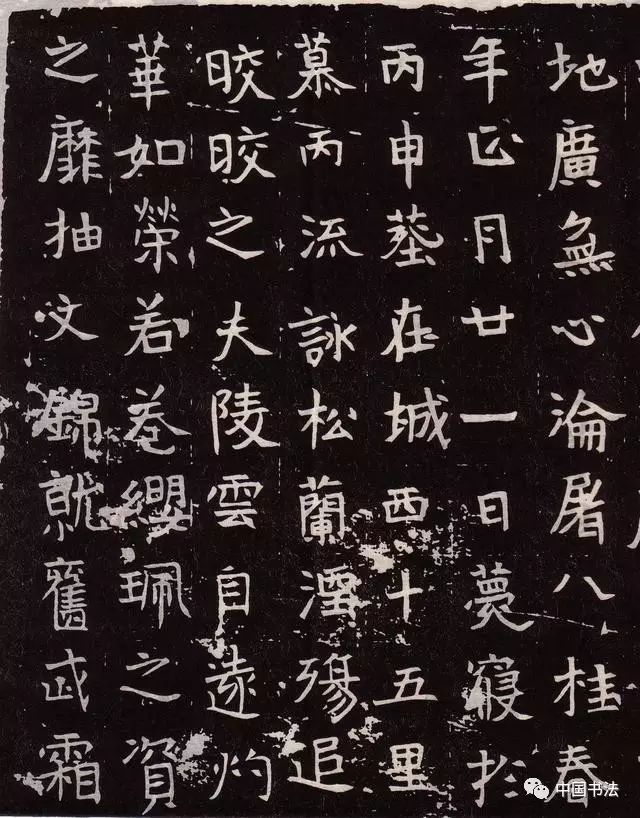 地廣無心淪屠八桂春
年正月廿一日薨寢扵
丙申塟在城西十五里
慕丙流詠松蘭湮殤追
晈晈之夫陵雲自遠灼
華如榮若卷纓珮之資
之靡抽文錦就舊武霜
中国书法